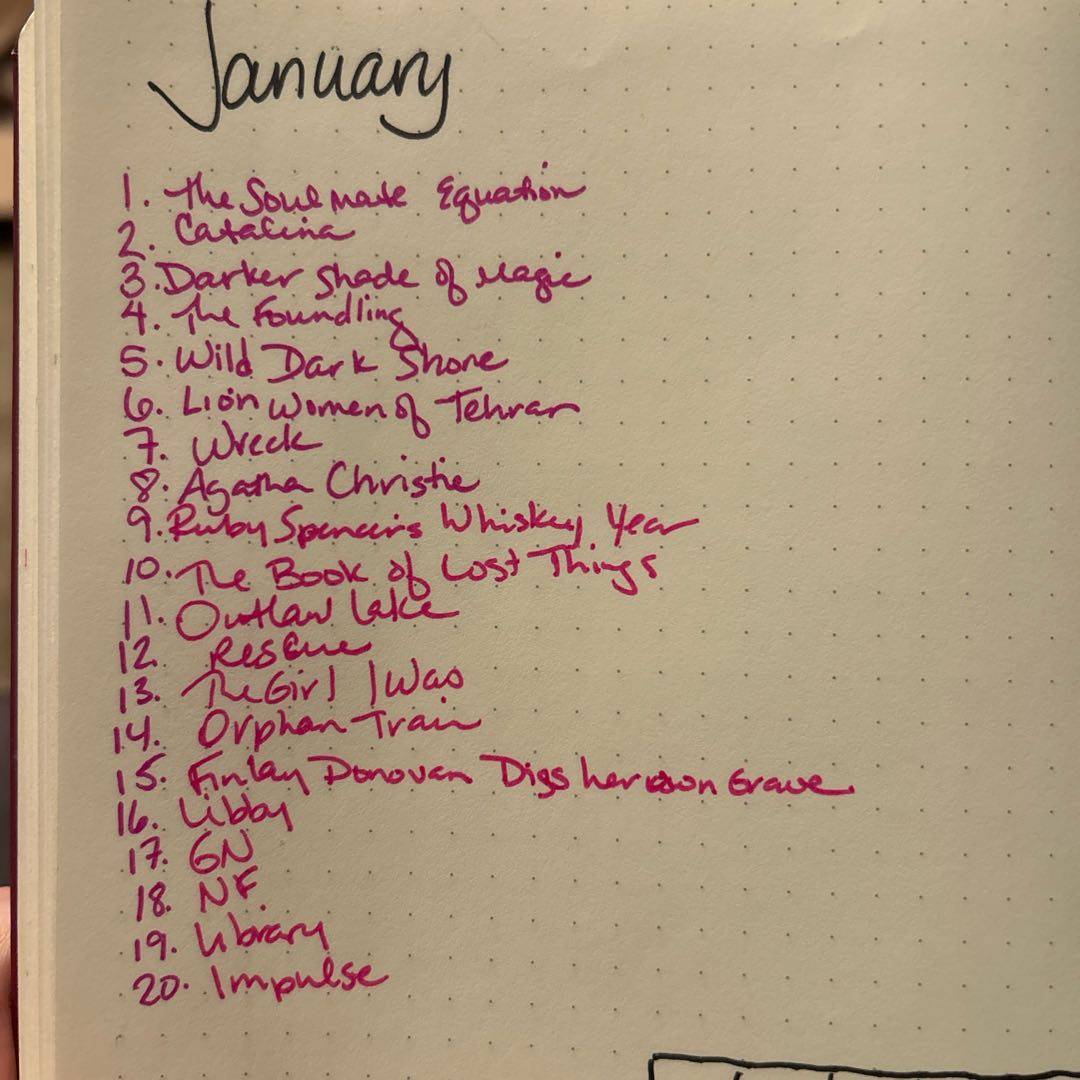 January
1. The Soulmate Equation
2. Catalina
3. Darker Shade of Magic
4. The Foundling
5. Wild Dark Shore
6. Lion Women of Tehran
7. Wreck
8. Agatha Christie
9. Ruby Spencer's Whiskey Year
10. The Book of Lost Things
11. Outlaw Lake
12. Rescue
13. The Girl I Was
14. Orphan Train
15. Finlay Donovan Digs her own Grave
16. Libby
17. GN
18. NF
19. Library
20. Impulse